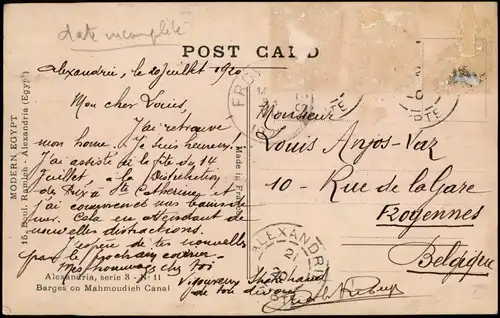 date incomplète
POST CARD
Alexandrie, le 20 juillet 1920
Mon cher Louis,
J'ai retrouvé
mon home. Je suis heureux.
J'ai assisté de la fête du 14
Juillet, a la Distribution
de Prix à Ste Catherine et
j'ai commencé mes
Cela en attendant de
nouvelles distractions.
J'espère de tes nouvelles
par le prochain courrier.
Mes hommages chez toi
Vigoureux Shakehand
de ton dévoué
MODERN EGYPT
15, Boul. Ramleh - Alexandria (Egypt)
Alexandria, serie 3 - No 11
Barges on Mahmoudieh Canal
Made in
Monsieur
Louis Anjos-Vaz
10 - Rue de la Gare
Froyennes
Belgique
ALEXANDRIE